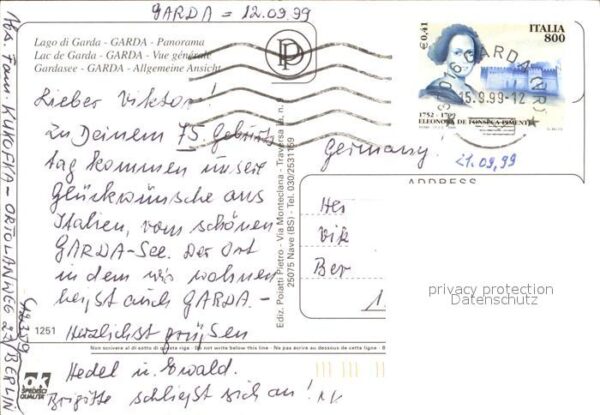 GARDA = 12.09.99
Lago di Garda - GARDA - Panorama
Lac de Garda - GARDA - Vue générale
Gardasee - GARDA - Allgemeine Ansicht
PP
€ 0,41
ITALIA
800
GARDA (VR)
15.9.99-12
1752 - 1799
ELEONORA DE FONSECA PIMENTEL
Lieber Viktor!
Zu Deinem 75. Geburts
tag kommen unsere
Glückwünsche aus
Italien, vom schönen
GARDA-See. Der Ort
in dem wir wohnen
heißt auch GARDA. -
Herzlichst grüßen
Hedel u. Ewald.
Brigitte schließt sich an!
Germany.
21.09.99
ADDRESS
Her
Vik
Ber
1
privacy protection
Datenschutz
Ediz. Poiatti Pietro - Via Monteclana - Traversa
25075 Nave (BS) - Tel. 030/2531159
1251
Non scrivere al di sotto di questa riga - Do not write below this line - Ne pas écrire au dessous de cette ligne
OK
SPEDISCI
QUALITÀ
Abs. Fam.
ORTOLANWEG
BERLIN